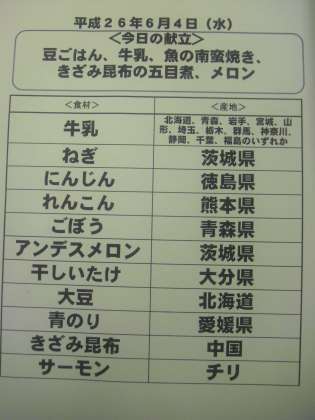 平成26年6月4日（水）
＜今日の献立＞
豆ごはん、牛乳、魚の南蛮焼き、
きざみ昆布の五目煮、メロン
＜食材＞ ＜産地＞
牛乳 北海道、青森、岩手、宮城、山
形、埼玉、栃木、群馬、神奈川、
静岡、千葉、福島のいずれか
ねぎ 茨城県
にんじん 徳島県
れんこん 熊本県
ごぼう 青森県
アンデスメロン 茨城県
干しいたけ 大分県
大豆 北海道
青のり 愛媛県
きざみ昆布 中国
サーモン チリ